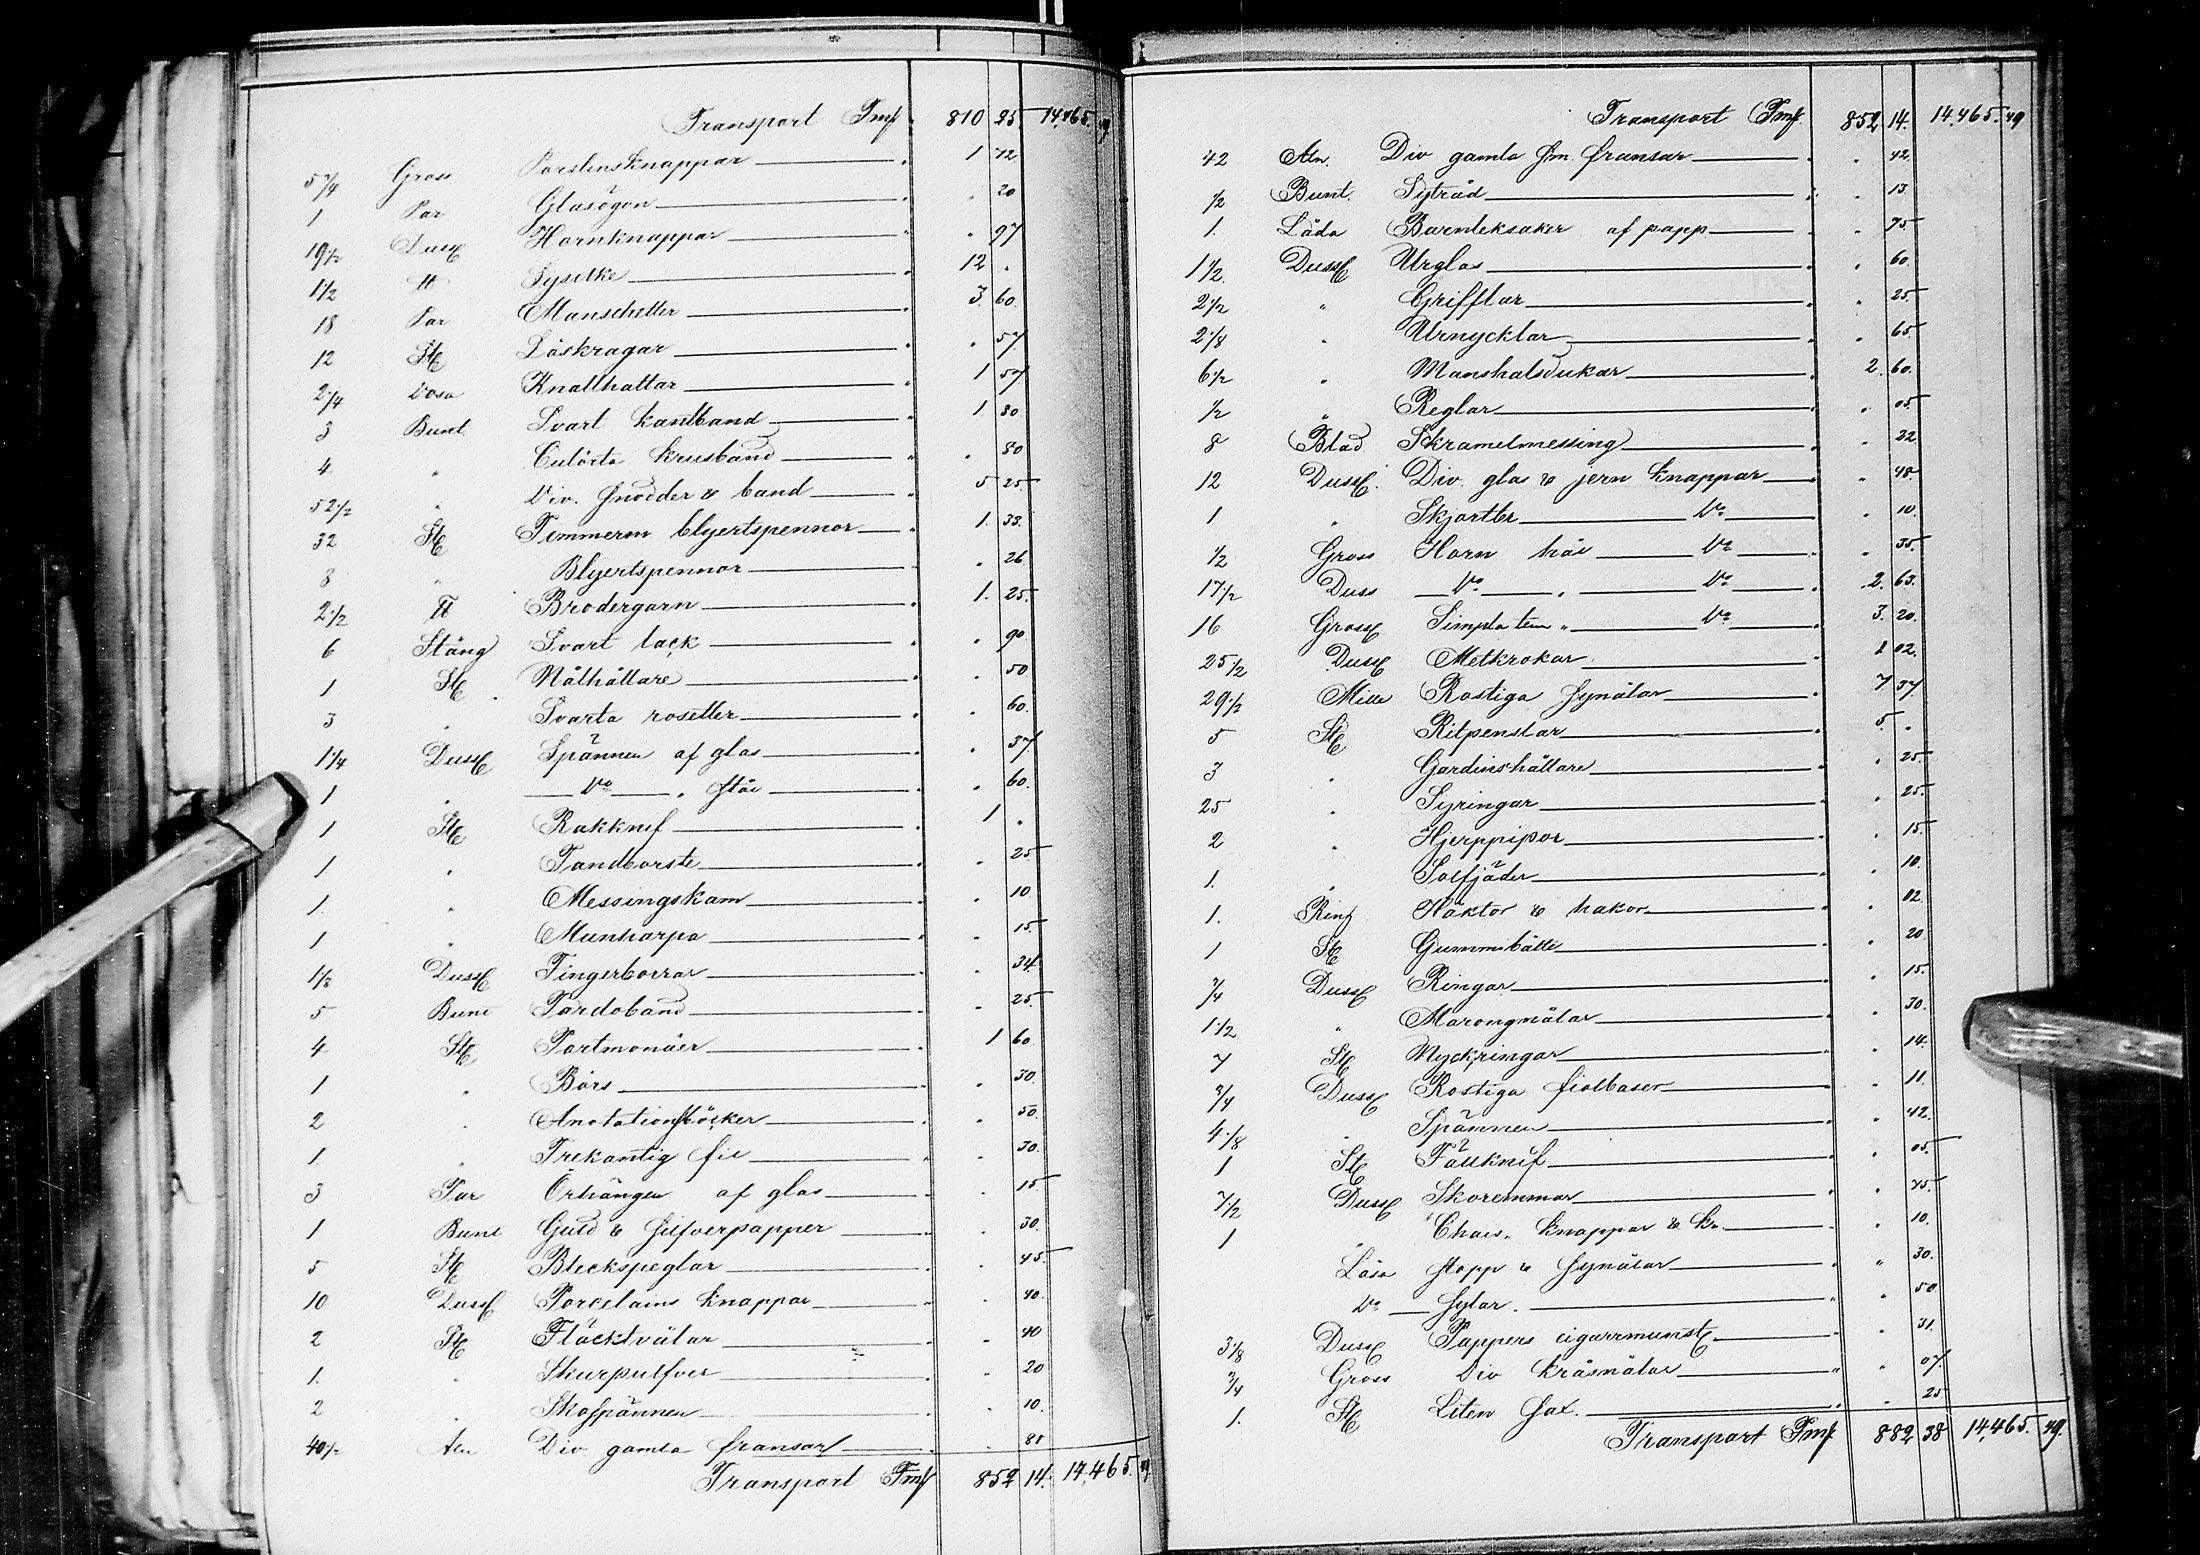 Transport Fmk 810 25 14,465. 49
5 3/4 Gross Porslinsknappar 1 72
1 Par Glasögon " 20
19 1/2 Dussc Hornknappar " 97
1 1/2 ℔ Sysilke 12 "
18 Par Manschetter 3 60.
12 Stc Löskragar " 57
2 1/4 Dosa Knallhattar 1 57
3 Bunt Svart kantband 1 80
4 " Culörta krusband " 80
52 1/2 " Div. snodder & band 5 25
32 Stc Timmerm blyertspennor 1. 33.
8 " Blyertspennor " 26
2 1/2 ℔ Brodergarn 1. 25.
6 Stång Svart lack " 90
1 Stc Nålhållare " 50
3 " Svarta rosetter " 60.
1 1/4 Dussc Spännen af glas " 37
1 " Do " stål " 60.
1 Stc Rakknif 1 "
1 " Tandborste " 25
1. " Messingskam " 10
1 " Munharpa " 15
1 1/8 Dussc Fingerborrar " 34
5 Bunt Pardoband " 25.
4 Stc Portmonäer 1 60
1 " Börs " 30.
2 " Anotationsböcker " 50.
1. " Trekantig fil " 30.
3 Par Örhängen af glas " 15
1 Bunt Guld & silfverpapper " 30.
5 Stc Bleckspeglar " 45
10 Dussc Porcelains knappar " 40.
2 Stc Fläcktvålar " 40
1. " Skurpulfver " 20
2 " Skospännen " 10.
40 1/2 Aln Div gamla fransar " 81
Transport Fmk 852 14. 14,465. 49
Transport Fmk 852 14. 14,465. 49
42 Aln. Div gamla sm. fransar " 42.
1/2 Bunt. Sytråd " 13
1. Låda Barnleksaker af papp " 75
1 1/2 Dussc Urglas " 60.
2 1/2 " Grifflar " 25
2 1/8 " Urnycklar " 65
6 1/2 " Manshalsdukar 2. 60.
1/2 " Reglar " 05
8 Blad Skramelmessing " 32
12 Dussc. Div. glas & jern knappar " 48
1 " Skjortbr Do " 10.
1/2 Gross Horn hål Do " 35.
17 1/2 Duss Do " Do 2. 63.
16 Grossc Simpla tenn " Do 3. 20.
25 1/2 Dussc Metkrokar 1 02.
29 1/2 Mille Rostiga synålar 7 37
5 Stc Ritpenslar 5. "
3 " Gardinshållare " 25
25 " Syringar " 25.
2 " Hjerppipor " 15
1. " Solfjäder " 10.
1. Ring Häktor & hakor " 02.
1 Stc Gummibälte " 20
3/4 Dussc Ringar " 15.
1 1/2 " Marongnålar " 30.
7 Stc Nyckringar " 14.
3/4 Dussc Rostiga fiolbaser " 11.
4 1/8 " Spännen " 42.
1 Stc Fällknif " 05
7/2 Dussc Skoremmar " 45.
1 " Chais. knappar & kr. " 10.
Låda stopp & synålar " 30.
Do sylar. " 50
3 1/8 Dussc Pappers cigarrmunstc " 31.
3/4 Gross Div kråsnålar " 07.
1. Stc Liten sax. " 25
Transport Fmk 882 38 14,465. 49.